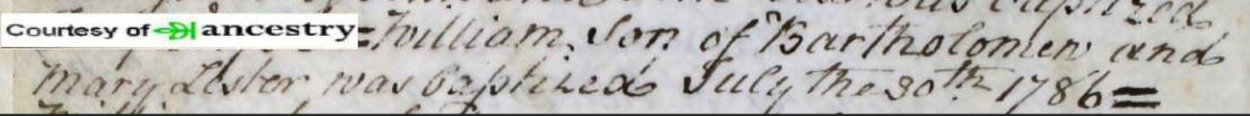 was baptized
Courtesy of ancestry
=William Son of Bartholomew and
Mary Lester was baptized July the 30th 1786=